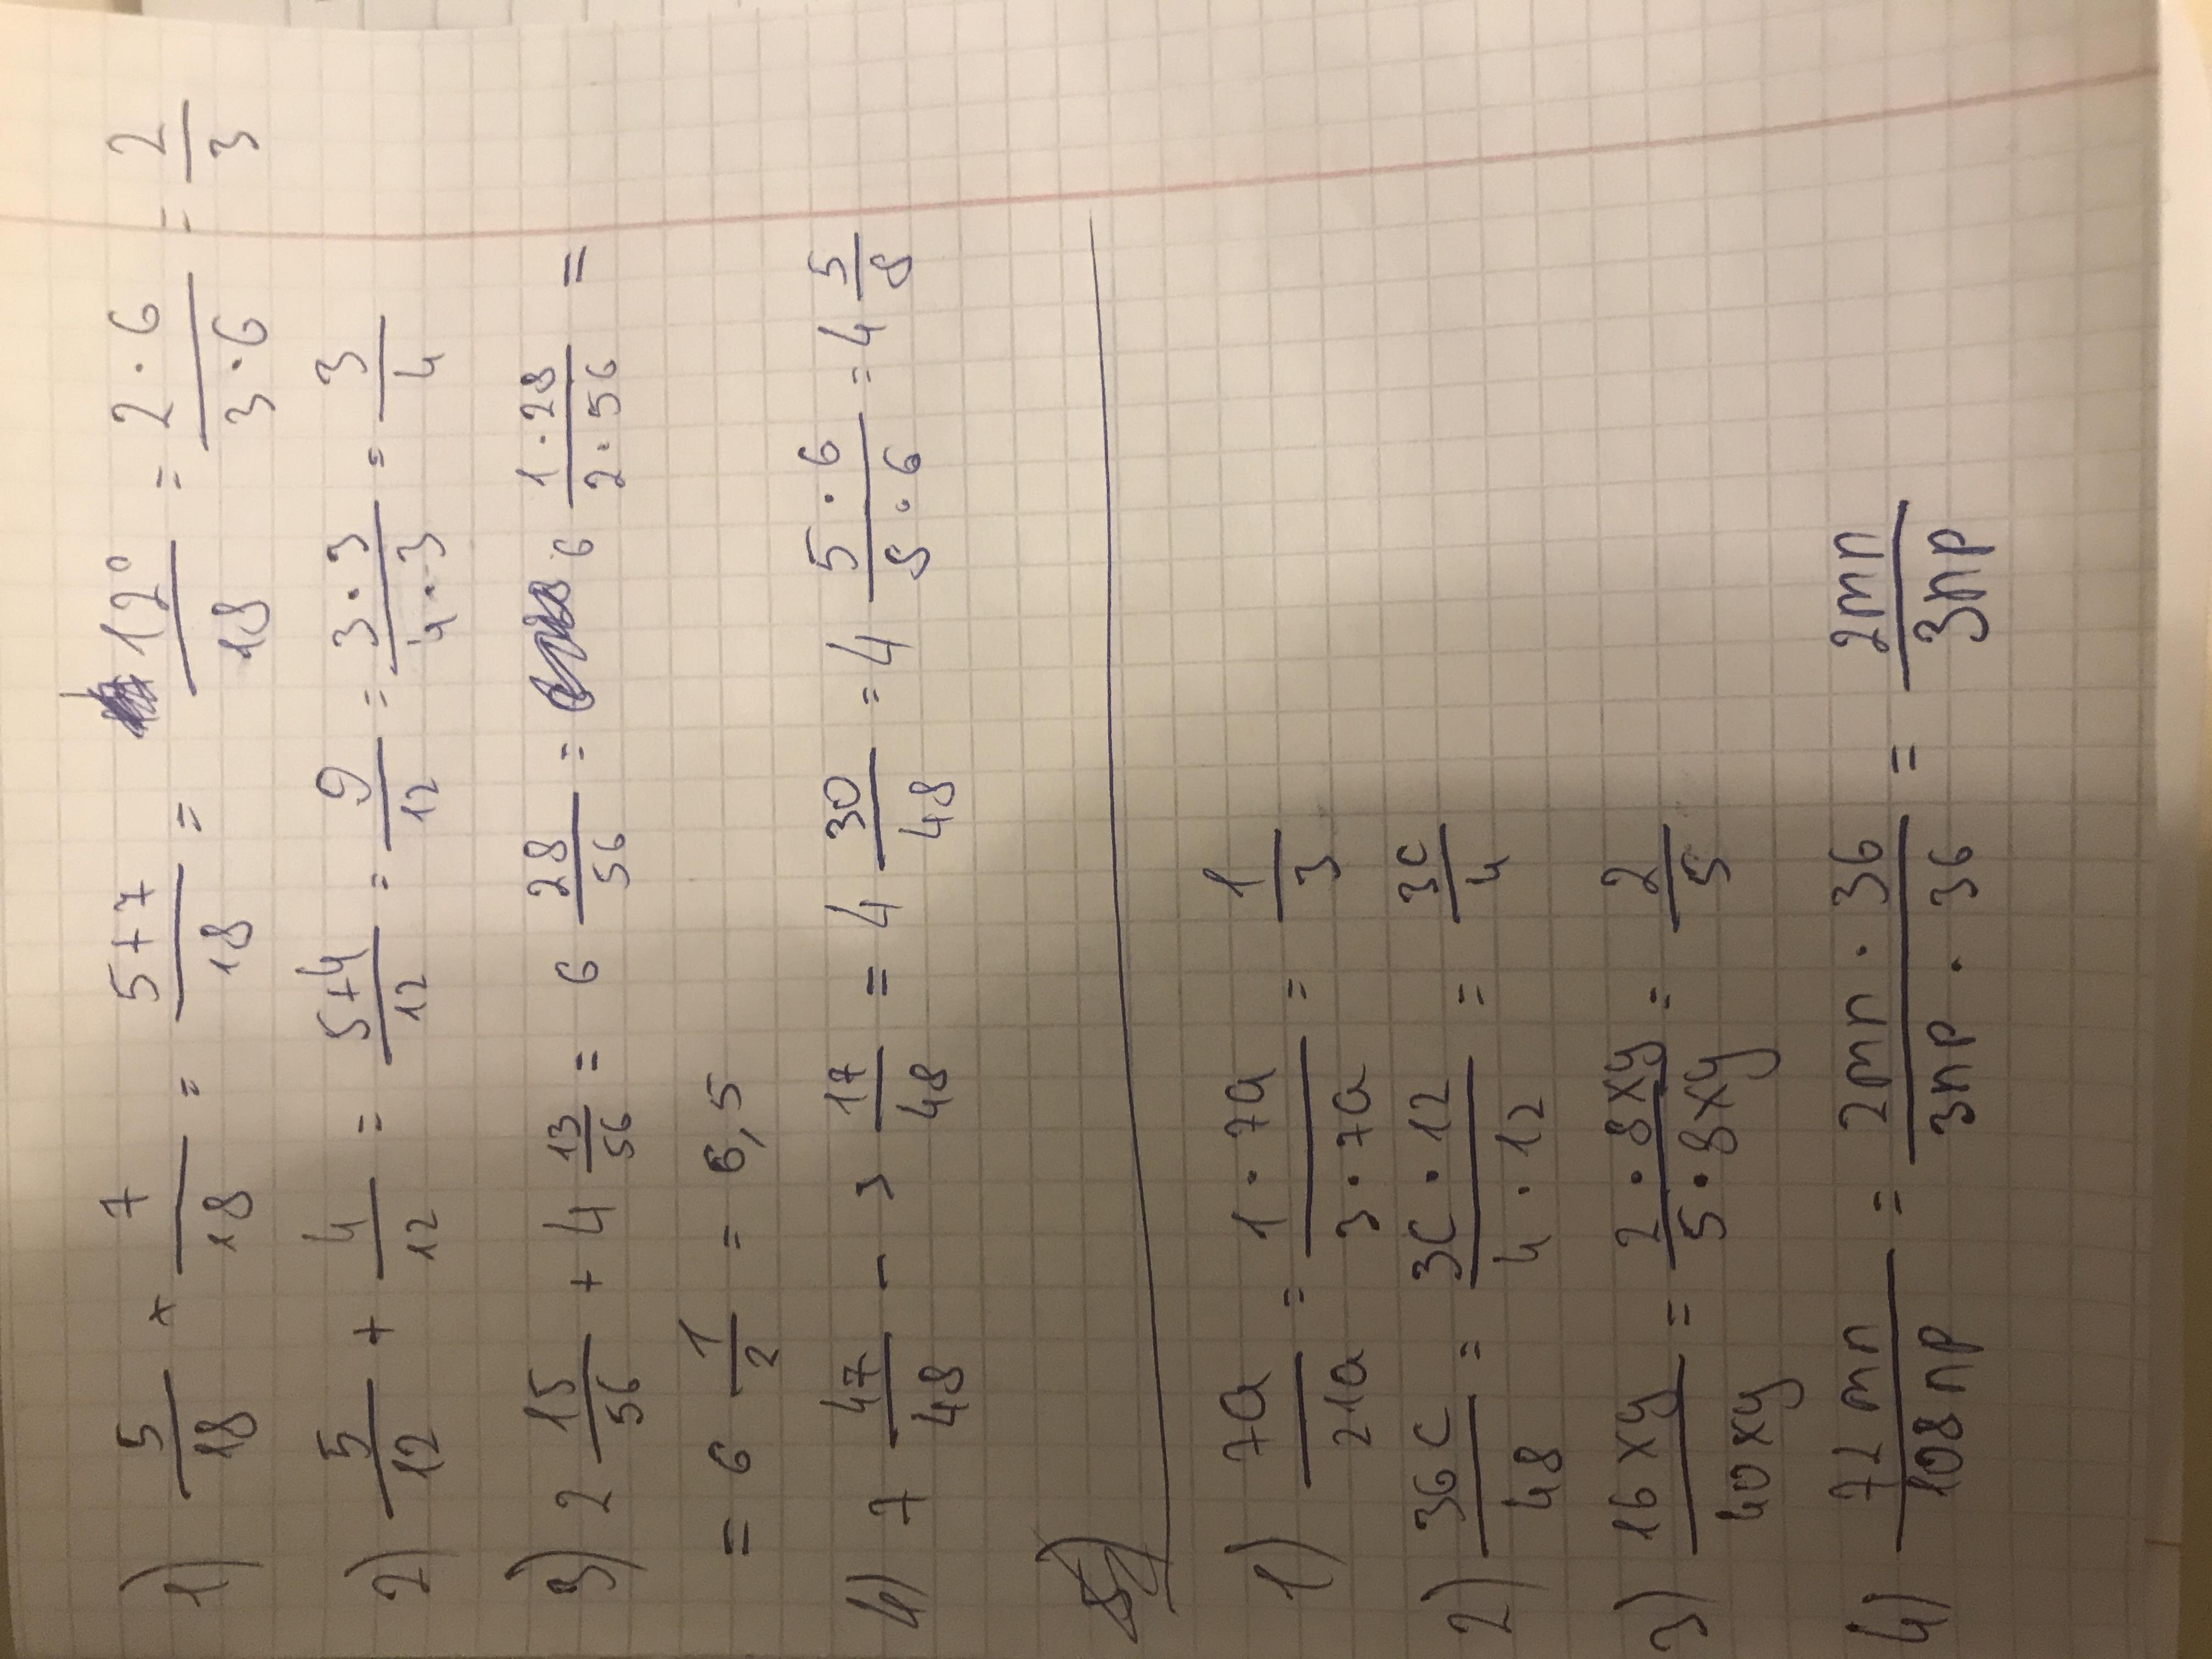 1) 5/18 + 7/18 = 5+7/18 = 12/18 = 2·6/3·6 = 2/3
2) 5/12 + 4/12 = 5+4/12 = 9/12 = 3·3/4·3 = 3/4
3) 2 15/56 + 4 13/56 = 6 28/56 = 6 1·28/2·56 =
= 6 1/2 = 6,5
4) 7 47/48 - 3 17/48 = 4 30/48 = 4 5·6/8·6 = 4 5/8
1) 7a/21a = 1·7a/3·7a = 1/3
2) 36c/48 = 3c·12/4·12 = 3c/4
3) 16xy/40xy = 2·8xy/5·8xy = 2/5
4) 72mn/108np = 2mn·36/3np·36 = 2mn/3np